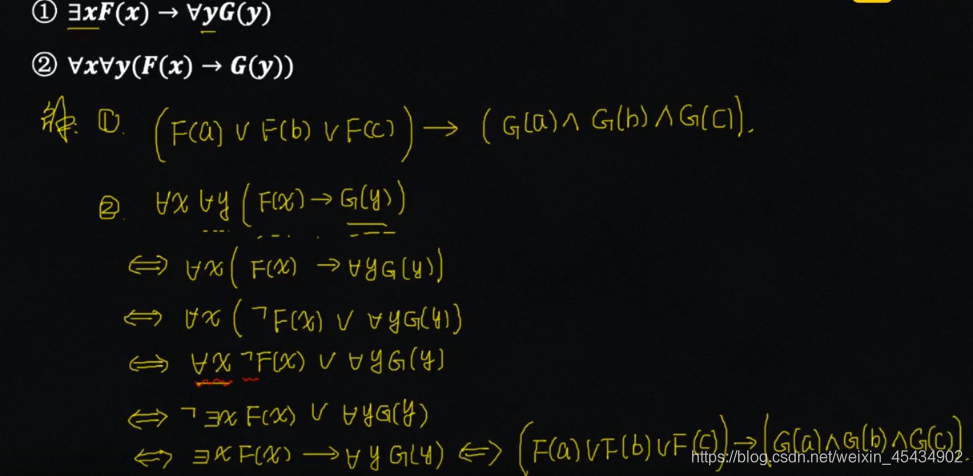 ① ∃xF(x) → ∀yG(y)
② ∀x∀y(F(x) → G(y))
解: ①. (F(a) ∨ F(b) ∨ F(c)) → (G(a) ∧ G(b) ∧ G(c)).
② ∀x ∀y (F(x) → G(y))
⇔ ∀x (F(x) → ∀yG(y))
⇔ ∀x (¬F(x) ∨ ∀yG(y))
⇔ ∀x ¬F(x) ∨ ∀yG(y)
⇔ ¬∃x F(x) ∨ ∀yG(y)
⇔ ∃x F(x) → ∀y G(y) ⇔ (F(a)∨F(b)∨F(c)) → (G(a)∧G(b)∧G(c))
https://blog.csdn.net/weixin_45434902